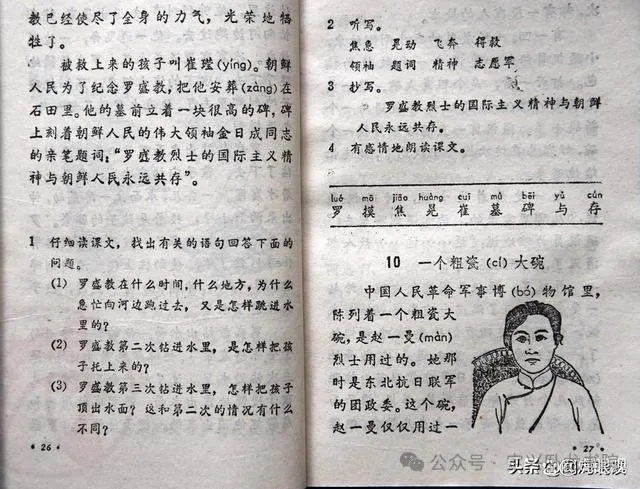 教已经使尽了全身的力气，光荣地牺
牲了。
被救上来的孩子叫崔莹(yíng)。朝鲜
人民为了纪念罗盛教，把他安葬(zàng)在
石田里。他的墓前立着一块很高的碑，碑
上刻着朝鲜人民的伟大领袖金日成同志
的亲笔题词：“罗盛教烈士的国际主义精
神与朝鲜人民永远共存”。
1 仔细读课文，找出有关的语句回答下面的
问题。
(1) 罗盛教在什么时间，什么地方，为什么
急忙向河边跑过去，又是怎样跳进水
里的？
(2) 罗盛教第二次钻进水里，是怎样把孩
子托上来的？
(3) 罗盛教第三次钻进水里，怎样把孩子
顶出水面？这和第二次的情况有什么
不同？
· 26 ·
2 听写。
焦急 晃动 飞奔 得救
领袖 题词 精神 志愿军
3 抄写。
罗盛教烈士的国际主义精神与朝鲜
人民永远共存。
4 有感情地朗读课文。
luó mō jiāo huàng cuī mù bēi yǔ cún
罗 摸 焦 晃 崔 墓 碑 与 存
10 一个粗瓷(cí)大碗
中国人民革命军事博(bó)物馆里，
陈列着一个粗瓷大
碗，是赵一曼(màn)
烈士用过的。她那
时是东北抗日联军
的团政委。这个碗，
赵一曼仅仅用过一
· 27 ·
公众号
头条